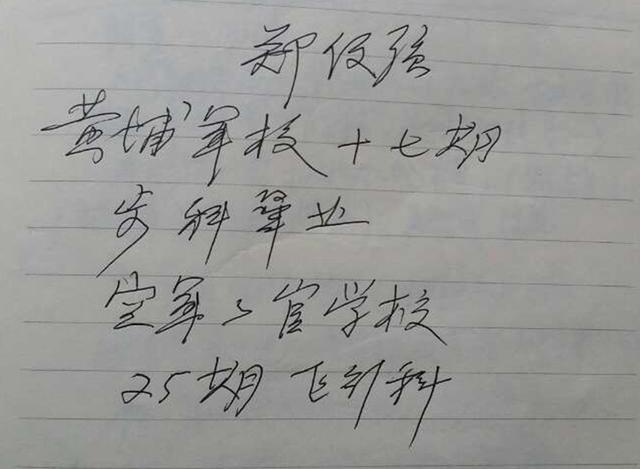 郑
黄埔军校十七期
步科畢业
空军々官学校
25期飞行科